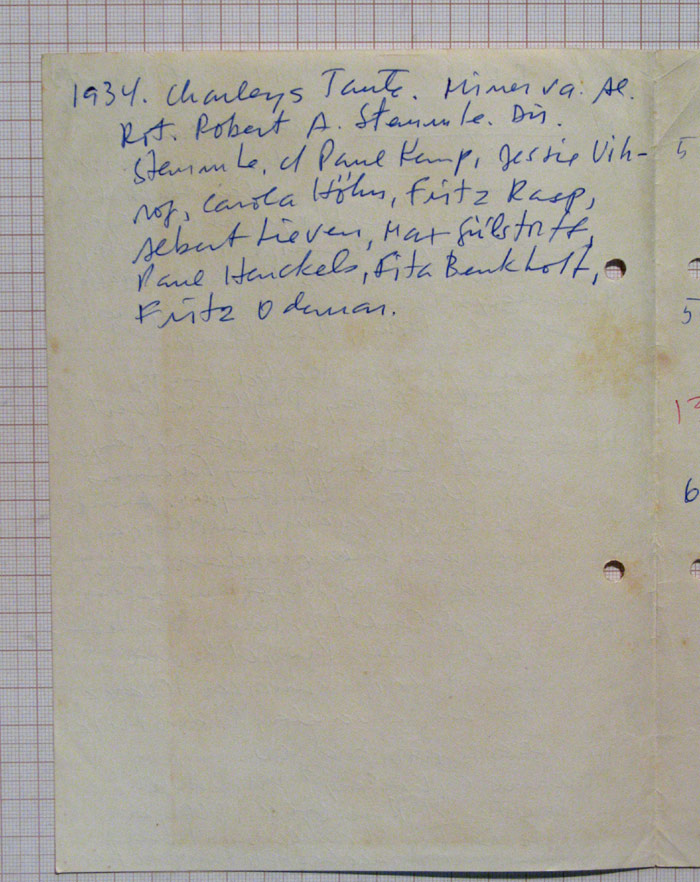 1934. Charleys Tante. Minerva. Al.
Rgt. Robert A. Stemmle. Dir.
Stemmle, d Paul Kemp, Jessie Vih-
rog, Carola Höhn, Fritz Rasp,
Albert Lieven, Max Gülstorff,
Paul Henckels, Fita Benkhoff,
Fritz Odemar.
5
5
6